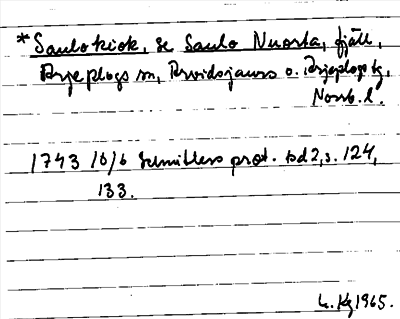 *Saulokiok, se Saulo Nuorta, fjäll,
Arjeplogs sn, Arvidsjaurs o. Arjeplogs tg,
Norrb. l.
1743 16/6 Schnitlers prot. bd 2, s. 124,
133.
1965.